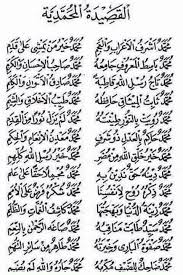 القصيدة المحمدية
مُحَمَّدٌ أَشْرَفُ الأَعْرَابِ وَالْعَجَمِ مُحَمَّدٌ خَيْرُ مَنْ يَمْشِي عَلَى قَدَمِ
مُحَمَّدٌ بَاسِطُ الْمَعْرُوفِ جَامِعُهُ مُحَمَّدٌ صَاحِبُ الإِحْسَانِ وَالْكَرَمِ
مُحَمَّدٌ تَاجُ رُسْلِ اللهِ قَاطِبَةً مُحَمَّدٌ صَادِقُ الأَقْوَالِ وَالْكَلِمِ
مُحَمَّدٌ ثَابِتُ الْمِيثَاقِ حَافِظُهُ مُحَمَّدٌ طَيِّبُ الأَخْلَاقِ وَالشِّيَمِ
مُحَمَّدٌ رُوِيَتْ بِالنُّورِ طِينَتُهُ مُحَمَّدٌ لَمْ يَزَلْ نُورًا مِنَ الْقِدَمِ
مُحَمَّدٌ حَاكِمٌ بِالْعَدْلِ ذُو شَرَفٍ مُحَمَّدٌ مَعْدِنُ الإِنْعَامِ وَالْحِكَمِ
مُحَمَّدٌ خَيْرُ خَلْقِ اللهِ مِنْ مُضَرٍ مُحَمَّدٌ خَيْرُ رُسْلِ اللهِ كُلِّهِمِ
مُحَمَّدٌ دِينُهُ حَقٌّ نَدِينُ بِهِ مُحَمَّدٌ مُجْمَلًا حَقًّا عَلَى عَلَمِ
مُحَمَّدٌ ذِكْرُهُ رُوحٌ لِأَنْفُسِنَا مُحَمَّدٌ شُكْرُهُ فَرْضٌ عَلَى الأُمَمِ
مُحَمَّدٌ زِينَةُ الدُّنْيَا وَبَهْجَتُهَا مُحَمَّدٌ كَاشِفُ الْغُمَّاتِ وَالظُّلَمِ
مُحَمَّدٌ سَيِّدٌ طَابَتْ مَنَاقِبُهُ مُحَمَّدٌ صَاغَهُ الرَّحْمَنُ بِالنِّعَمِ
مُحَمَّدٌ صَفْوَةُ الْبَارِي وَخِيرَتُهُ مُحَمَّدٌ طَاهِرٌ مِنْ سَائِرِ التُّهَمِ
مُحَمَّدٌ ضَاحِكٌ لِلضَّيْفِ مُكْرِمُهُ مُحَمَّدٌ جَارُهُ وَاللهِ لَمْ يُضَمِ